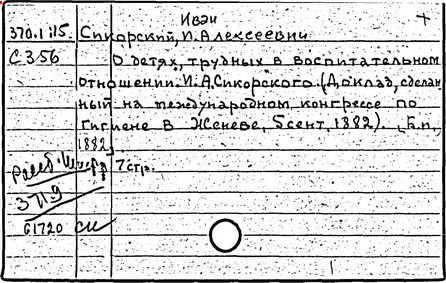 Иван
370.1:15. Сикорский, И. Алексеевич
С356 О детях, трудных в воспитательном
отношении. И.А.Сикорского. (Доклад, сделан
ный на международном конгрессе по
гигиене в Женеве, 5 сент, 1882). [Б.п.,
1882]
7 стр.
3 П.9
G1720 СК